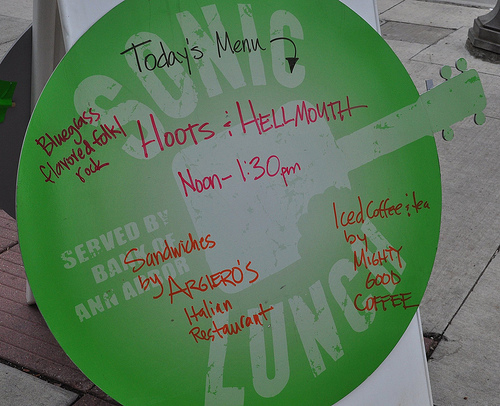 SONIC
Today's Menu
Bluegrass
flavored folk/
rock
HOOTS & HELLMOUTH
Noon-1:30pm
SERVED BY
ANN ARBOR
Sandwiches
by ARGIERO'S
Italian
Restaurant
Iced Coffee & tea
by
MIGHTY
GOOD
COFFEE
LUNCH